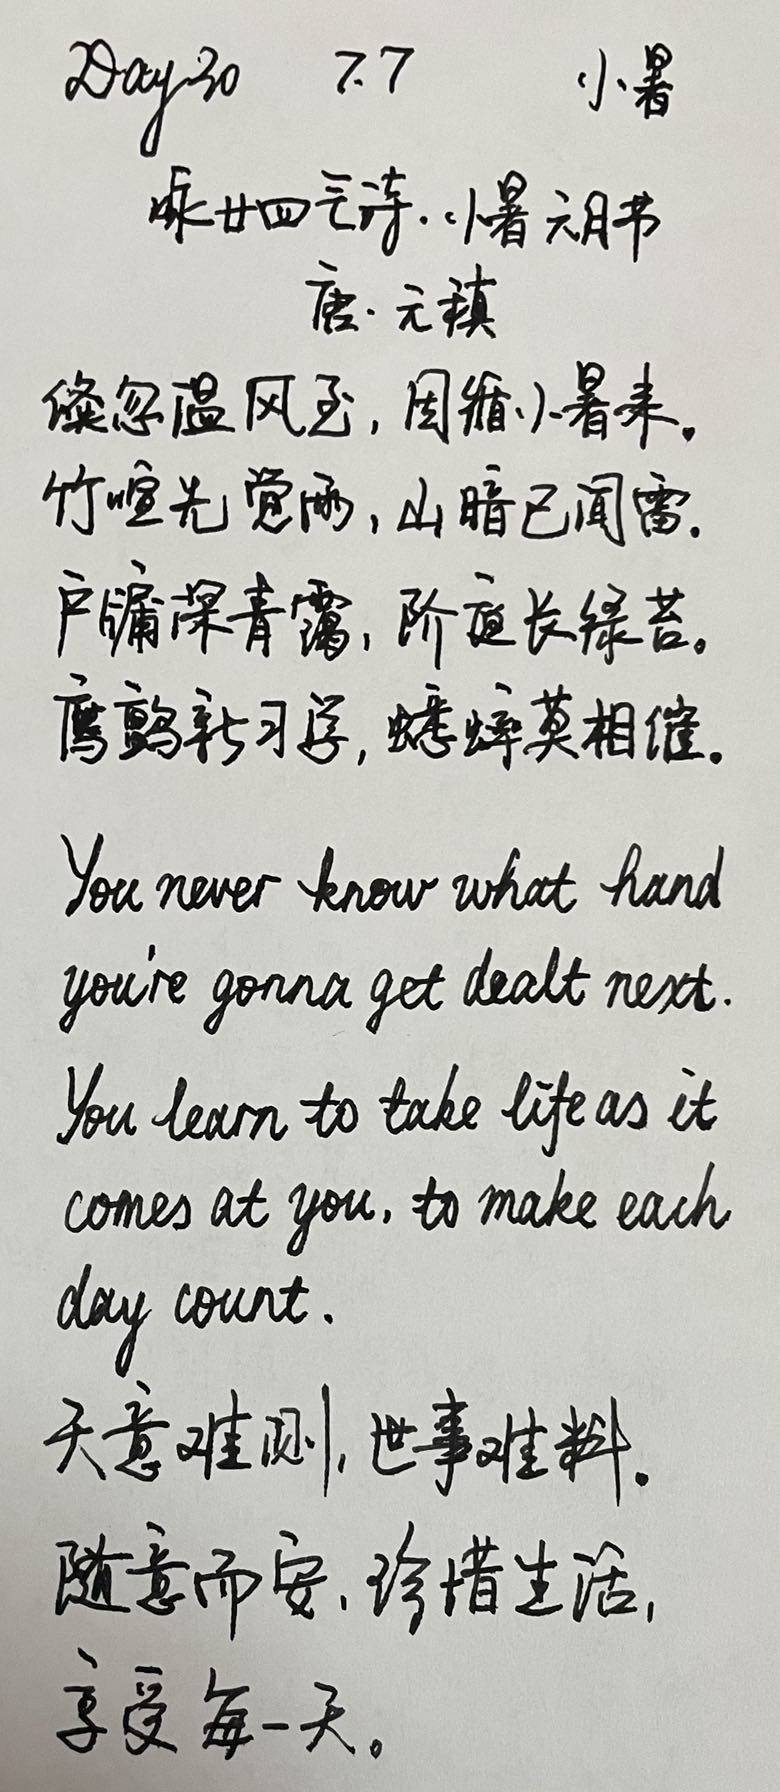 Day30 7.7 小暑
咏廿四气诗·小暑六月节
唐·元稹
倏忽温风至，因循小暑来。
竹喧先觉雨，山暗已闻雷。
户牖深青霭，阶庭长绿苔。
鹰鹯新习学，蟋蟀莫相催。
You never know what hand
you're gonna get dealt next.
You learn to take life as it
comes at you, to make each
day count.
天意难测，世事难料。
随意而安，珍惜生活，
享受每一天。